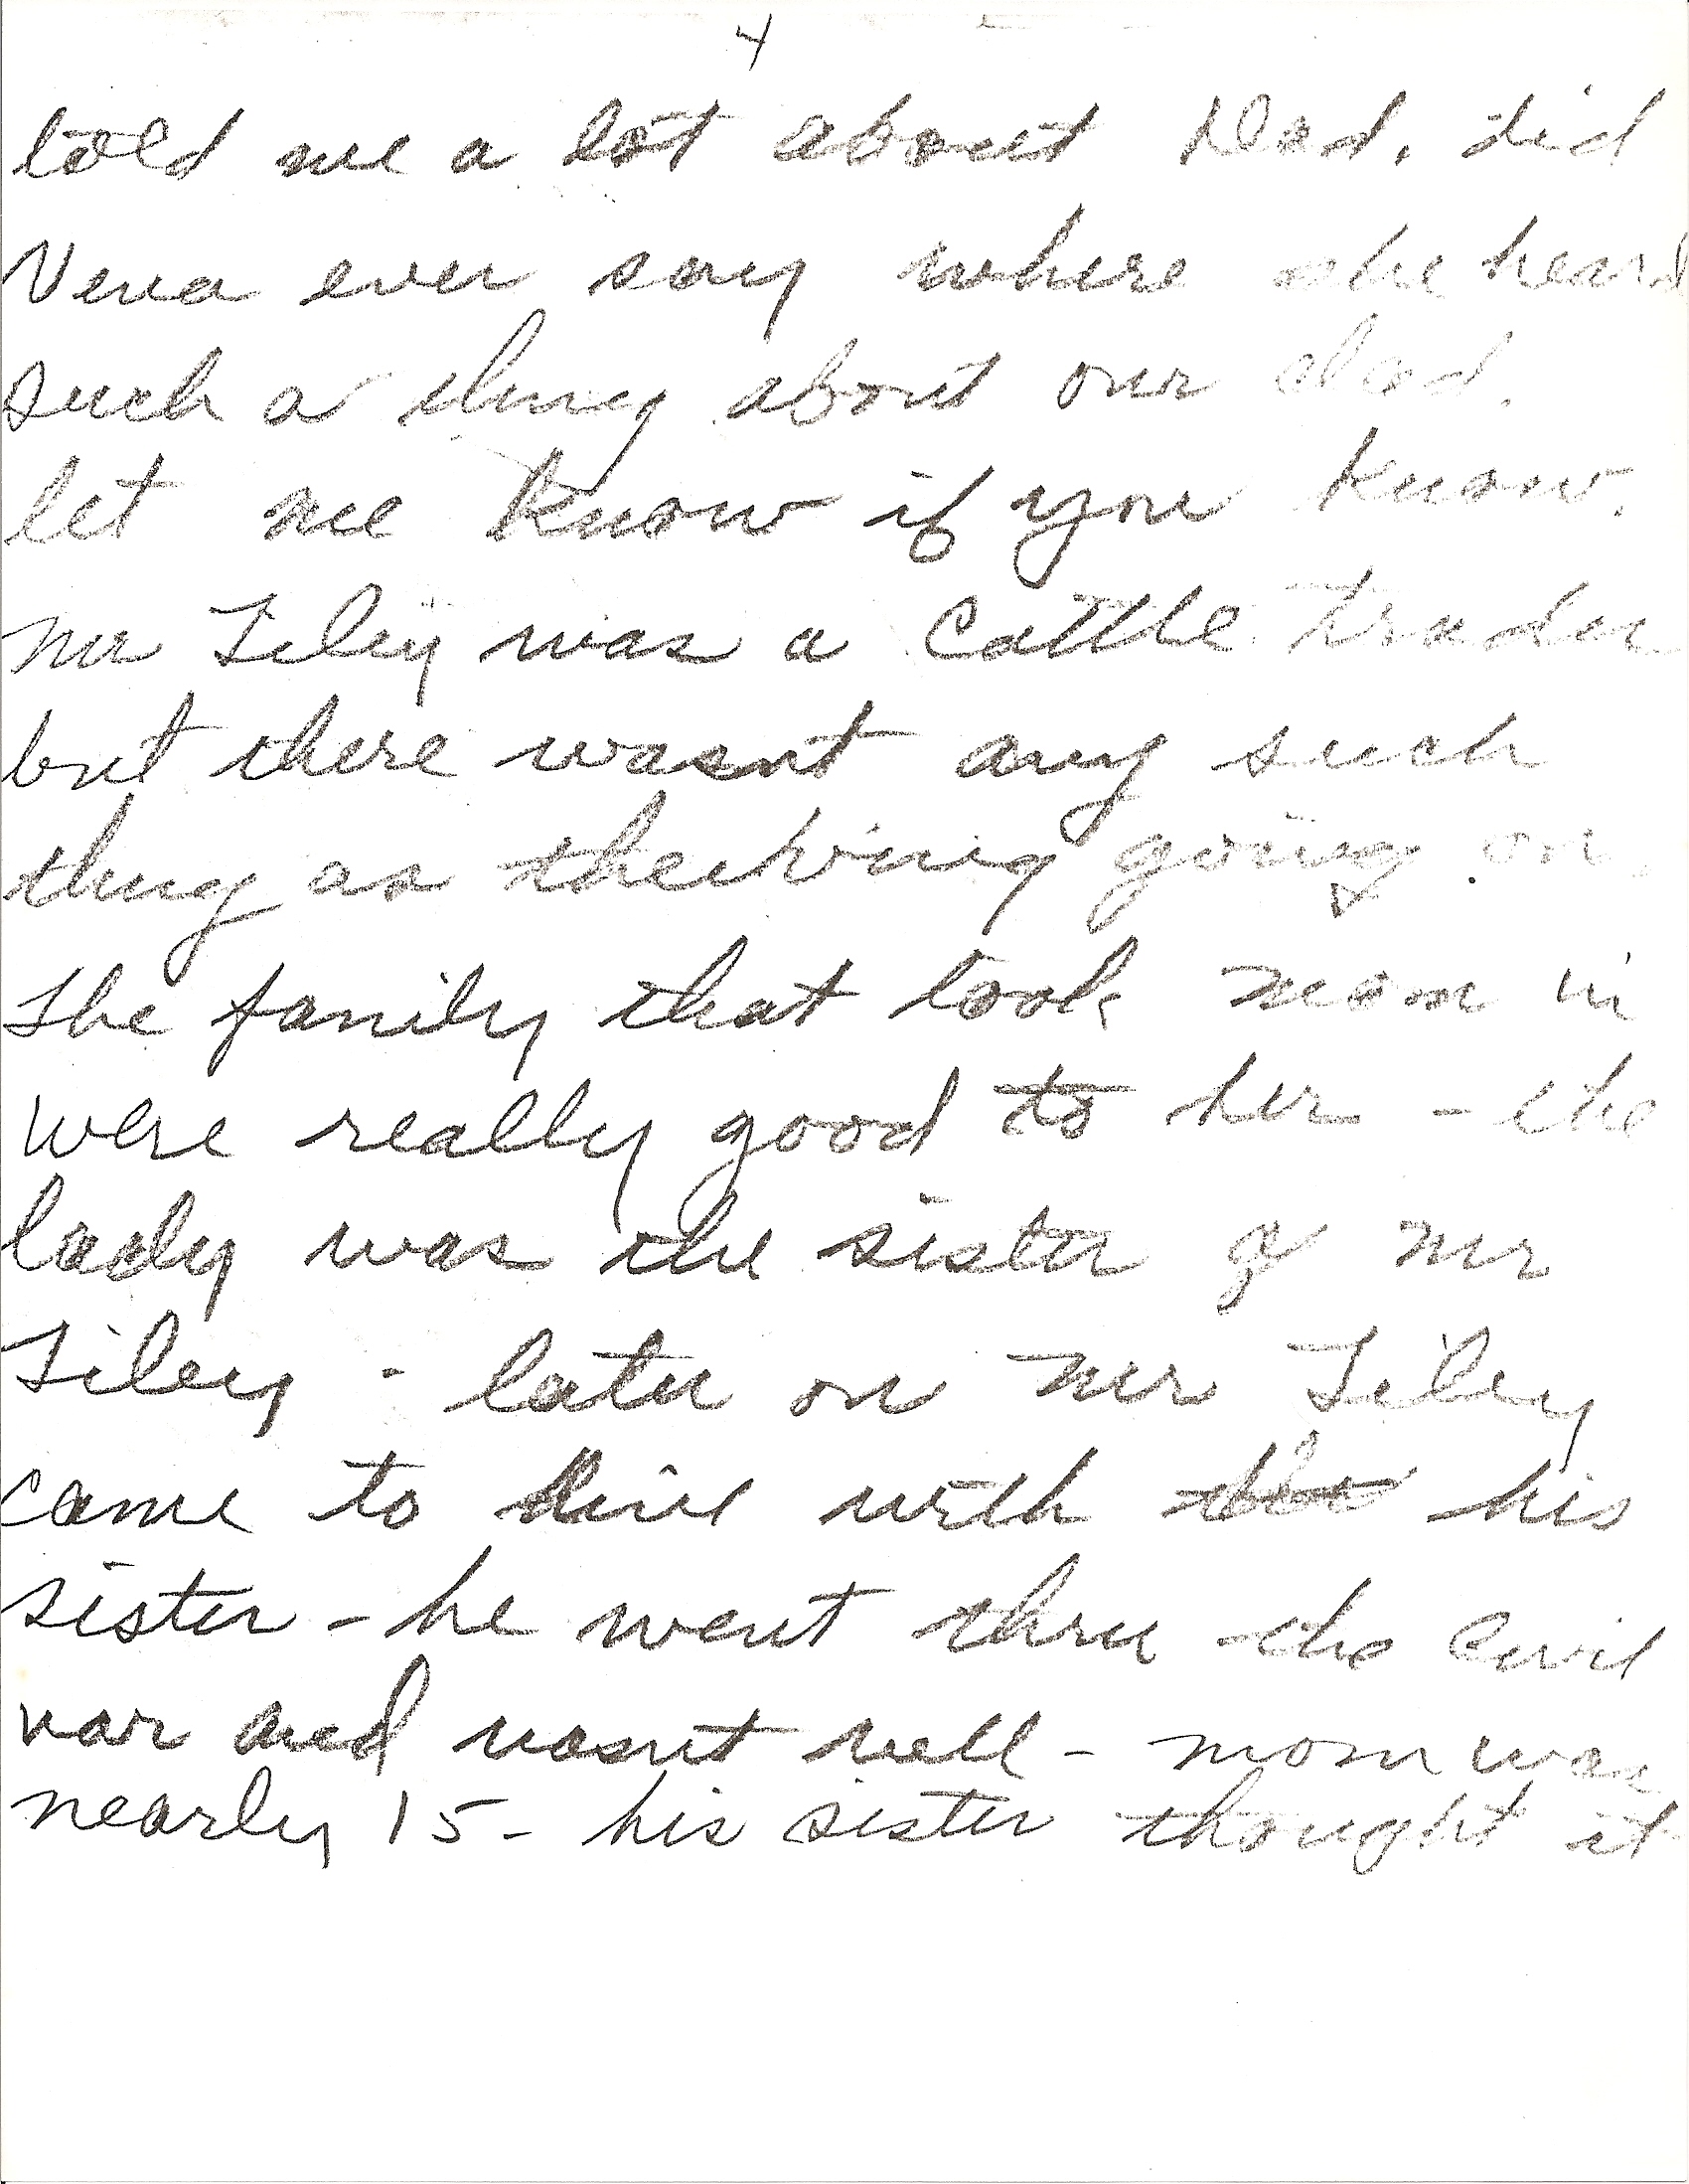 4
told me a lot about Dad. did
Neva ever say where she heard
such a thing about our dad.
let me know if you know.
Mr Tiley was a Cattle trader
but there wasnt any such
thing as theiving going on.
The family that took mom in
were really good to her - the
lady was the sister of Mr
Tiley - later on Mr Tiley
came to live with his
sister - he went thru the Civil
war and wasnt well - mom was
nearly 15 - his sister thought it